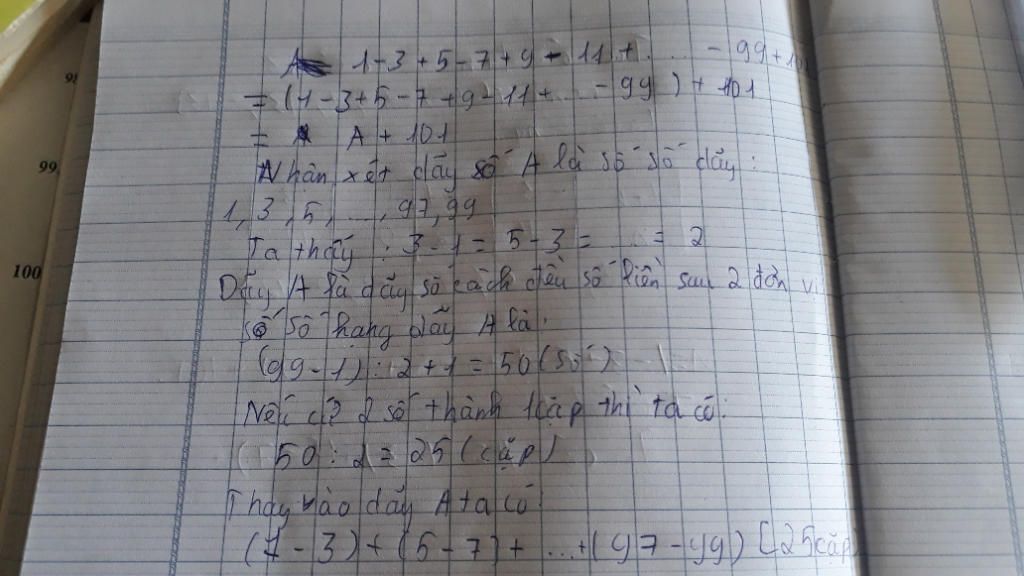 A 1-3+5-7+9-11+... -99+101
= (1-3+5-7+9-11+...-99)+101
= A+101
Nhận xét dãy số A là số số dãy:
1, 3, 5, ..., 97, 99
Ta thấy: 3-1=5-3=...=2
Dãy A là dãy số cách đều số liền sau 2 đơn vị
số số hang dãy A là:
(99-1):2+1=50(số)
Nếu cứ 2 số thành 1 cặp thì ta có:
50:2=25(cặp)
Thay vào dãy A ta có
(1-3)+(5-7)+...+(97-99) [25cặp]
99
100